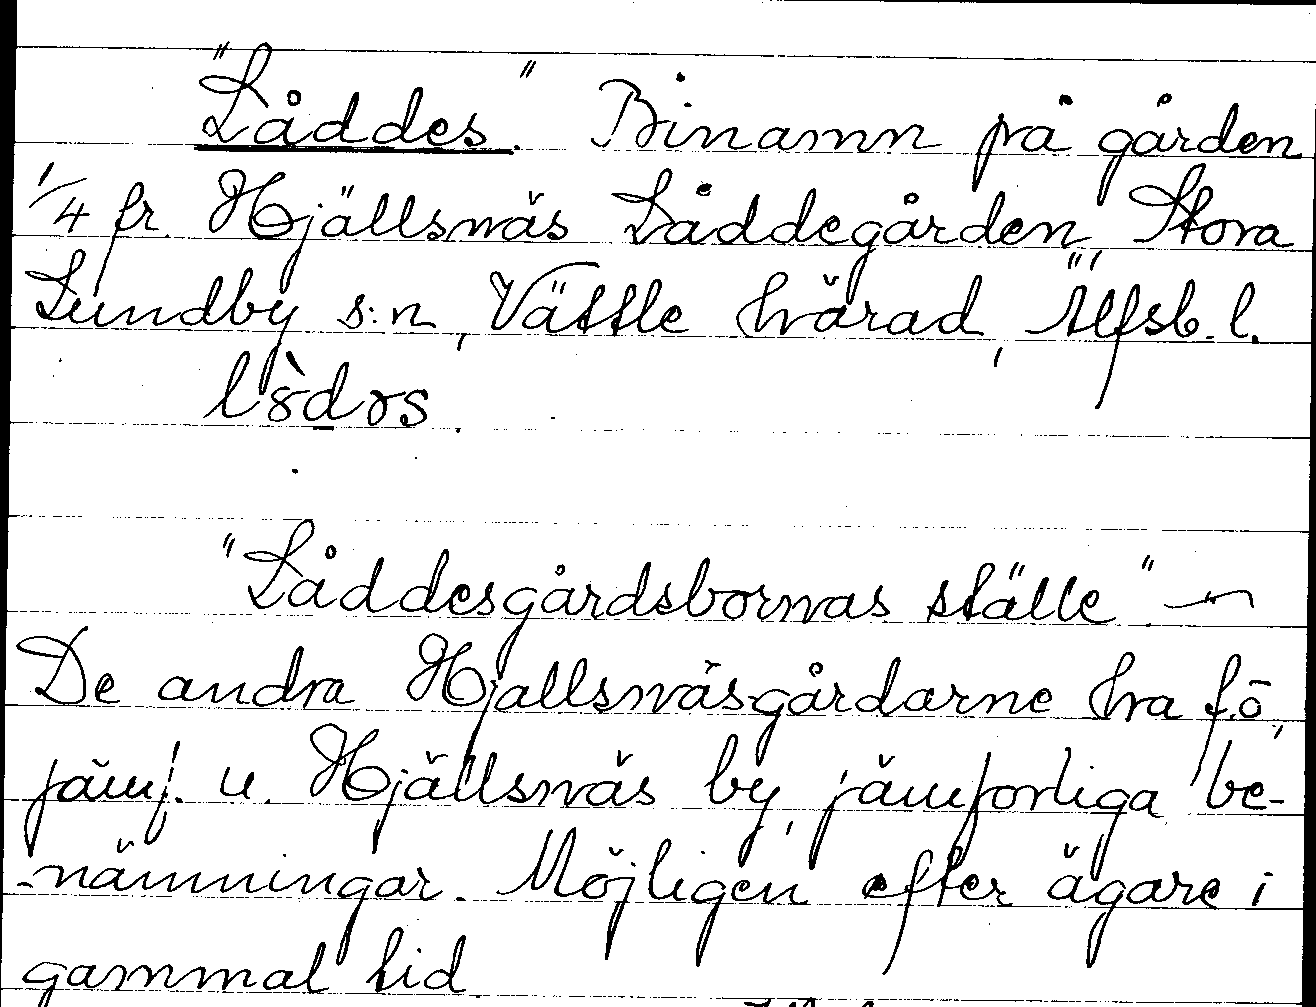 "Låddes." Binamn på gården
1/4 fr. Hjällsnäs Låddegården, Stora
Lundby s:n, Vättle härad, Älfsb. l.
"Låddesgårdsbornas ställe".
De andra Hjällsnäsgårdarne ha f.ö.,
jämf. u. Hjällsnäs by, jämförliga be-
-nämningar. Möjligen efter ägare i
gammal tid